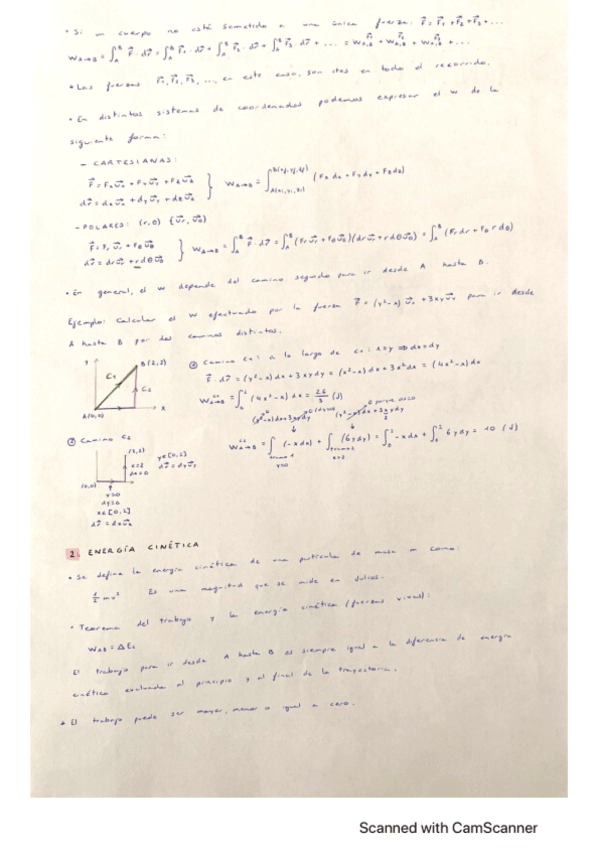 • Si un cuerpo no está sometido a una única fuerza: F = F₁ + F₂ + F₃ + ...
W A→B = ∫_A^B F · dr = ∫_A^B F₁ · dr + ∫_A^B F₂ · dr + ∫_A^B F₃ · dr + ... = W_A,B^F₁ + W_A,B^F₂ + W_A,B^F₃ + ...
• Las fuerzas F₁, F₂, F₃, ..., en este caso, son ctes en todo el recorrido.
• En distintos sistemas de coordenadas podemos expresar el W de la
siguiente forma:
- CARTESIANAS:
F = Fx ux + Fy uy + Fz uz
dr = dx ux + dy uy + dz uz
W A→B = ∫_A(x1,y1,z1)^B(xf,yf,zf) (Fx dx + Fy dy + Fz dz)
- POLARES: (r, θ) {ur, uθ}
F = Fr ur + Fθ uθ
dr = dr ur + r dθ uθ
W A→B = ∫_A^B F · dr = ∫_A^B (Fr ur + Fθ uθ)(dr ur + r dθ uθ) = ∫_A^B (Fr dr + Fθ r dθ)
• En general, el W depende del camino seguido para ir desde A hasta B.
Ejemplo: Calcular el W efectuado por la fuerza F = (y² - x) ux + 3xy uy para ir desde
A hasta B por dos caminos distintos.
y
B(2,2)
C₁
C₂
A(0,0)
x
① Camino C₁: a lo largo de C₁: x=y ⇒ dx=dy
F · dr = (y² - x) dx + 3xy dy = (x² - x) dx + 3x² dx = (4x² - x) dx
W A→B^C₁ = ∫_0^2 (4x² - x) dx = 26/3 (J)
② Camino C₂
(2,2)
x=2
dx=0
y∈[0,2]
dr = dy uy
(0,0)
y=0
dy=0
x∈[0,2]
dr = dx ux
W A→B^C₂ = ∫_tramo 1 y=0 (-x dx) + ∫_tramo 2 x=2 (6y dy) = ∫_0^2 -x dx + ∫_0^2 6y dy = 10 (J)
2. ENERGÍA CINÉTICA
• Se define la energía cinética de una partícula de masa m como:
½ mv² Es una magnitud que se mide en Julios.
• Teorema del trabajo y la energía cinética (fuerzas vivas):
W AB = ΔEc
El trabajo para ir desde A hasta B es siempre igual a la diferencia de energía
cinética evaluada al principio y al final de la trayectoria.
• El trabajo puede ser mayor, menor o igual a cero.
Scanned with CamScanner